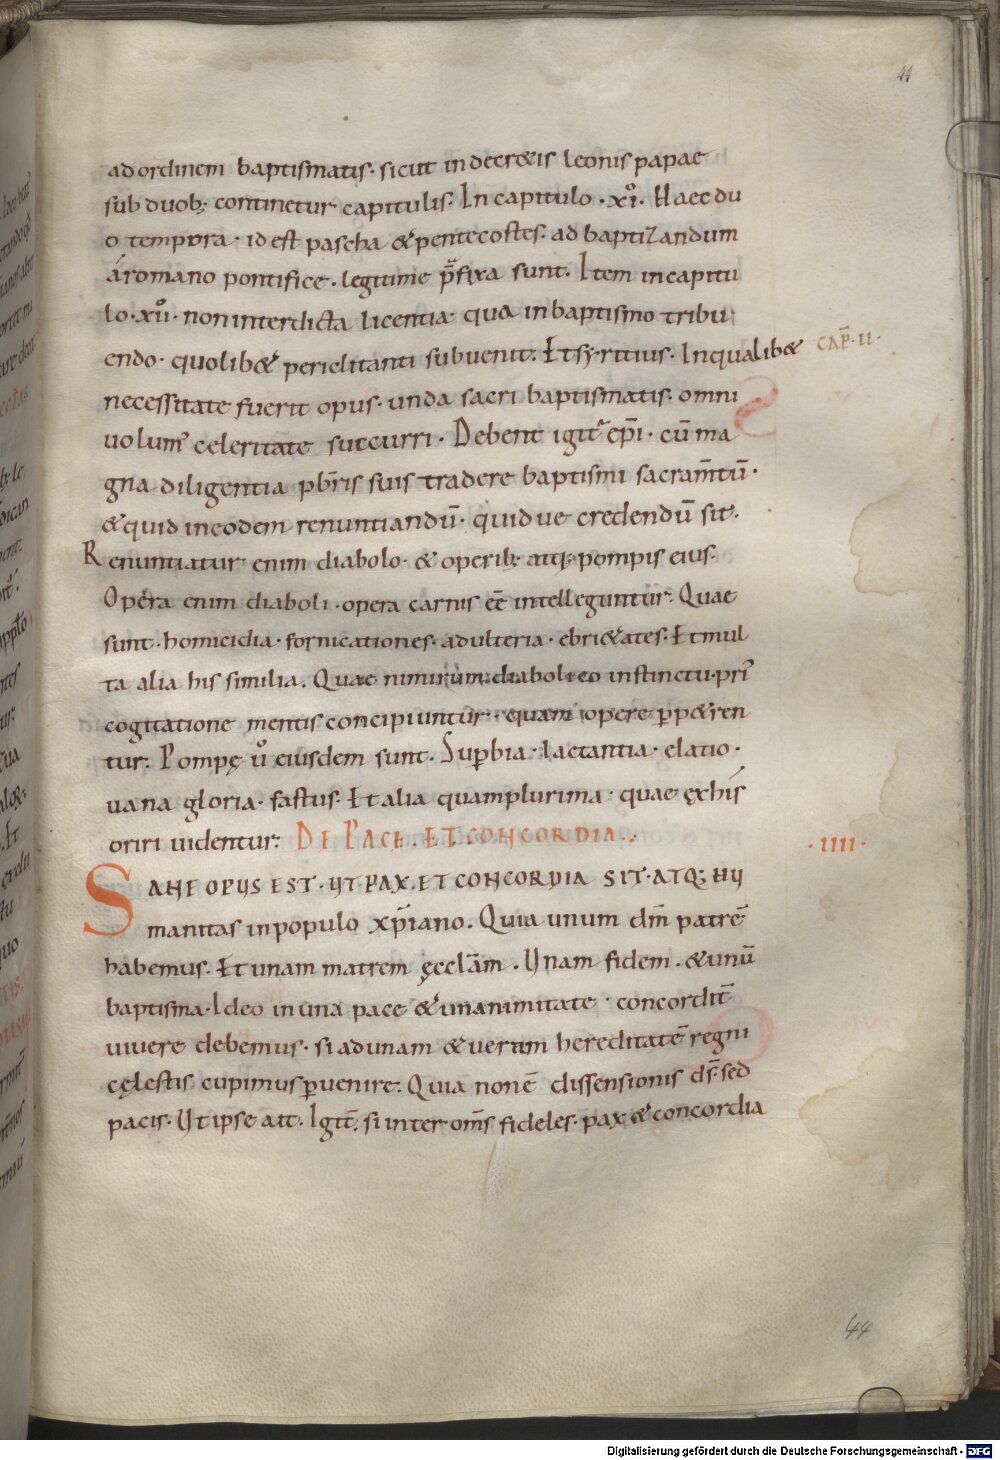 44
ad ordinem baptismatis· sicut in decr&is leonis papae
sub duob; continetur capitulis· In capitulo ·xi̊· Haec du
o tempora· id est pascha & pentecostes· ad baptizandum
a romano pontifice· legitime p̄fixa sunt· Item in capitu
lo·xii̊· non interdicta licentia· qua in baptismo tribu
endo· quolib& periclitanti subuenit· Et syritius· In qualib&
CAP̄·II·
necessitate fuerit opus· unda sacri baptismatis· omni
uolum᾽ celeritate succurri· Debent igit᾽ ep̄i· cū ma
gna diligentia pb̄ris suis tradere baptismi sacram̄tū·
& quid in eodem renuntiandū· quid ue credendū sit·
Renuntiatur enim diabolo· & operib; atq; pompis eius·
Opera enim diaboli· opera carnis eē intelleguntur· Quae
sunt· homicidia· fornicationes· adulteria· ebri&ates· Et mul
ta alia his similia· Quae nimirum diaboli eo instinctu· pri᾽
cogitatione mentis concipiuntur· quam opere ꝑp&ren
tur· Pompę ů eiusdem sunt· Suꝑbia· Iactantia· elatio·
uana gloria· fastus· Et alia quamplurima· quae ęx his
oriri uidentur· DE PACE· ET CONCORDIA·
·IIII·
SANE OPUS EST· UT PAX· ET CONCORDIA SIT· ATQ; HU
manitas in populo xp̄iano· Quia unum dm̄ patrē
habemus· Et unam matrem ęcclām· Unam fidem· & unū
baptisma· Ideo in una pace & unanimitate· concordit̄
uiuere debemus· si ad unam & ueram hereditatē regni
cęlestis cupimus ꝑuenire· Quia non ē dissensionis ds̄· sed
pacis· Ut ipse ait· Igit̄· si inter om̄s fideles· pax & concordia
44
Digitalisierung gefördert durch die Deutsche Forschungsgemeinschaft - DFG